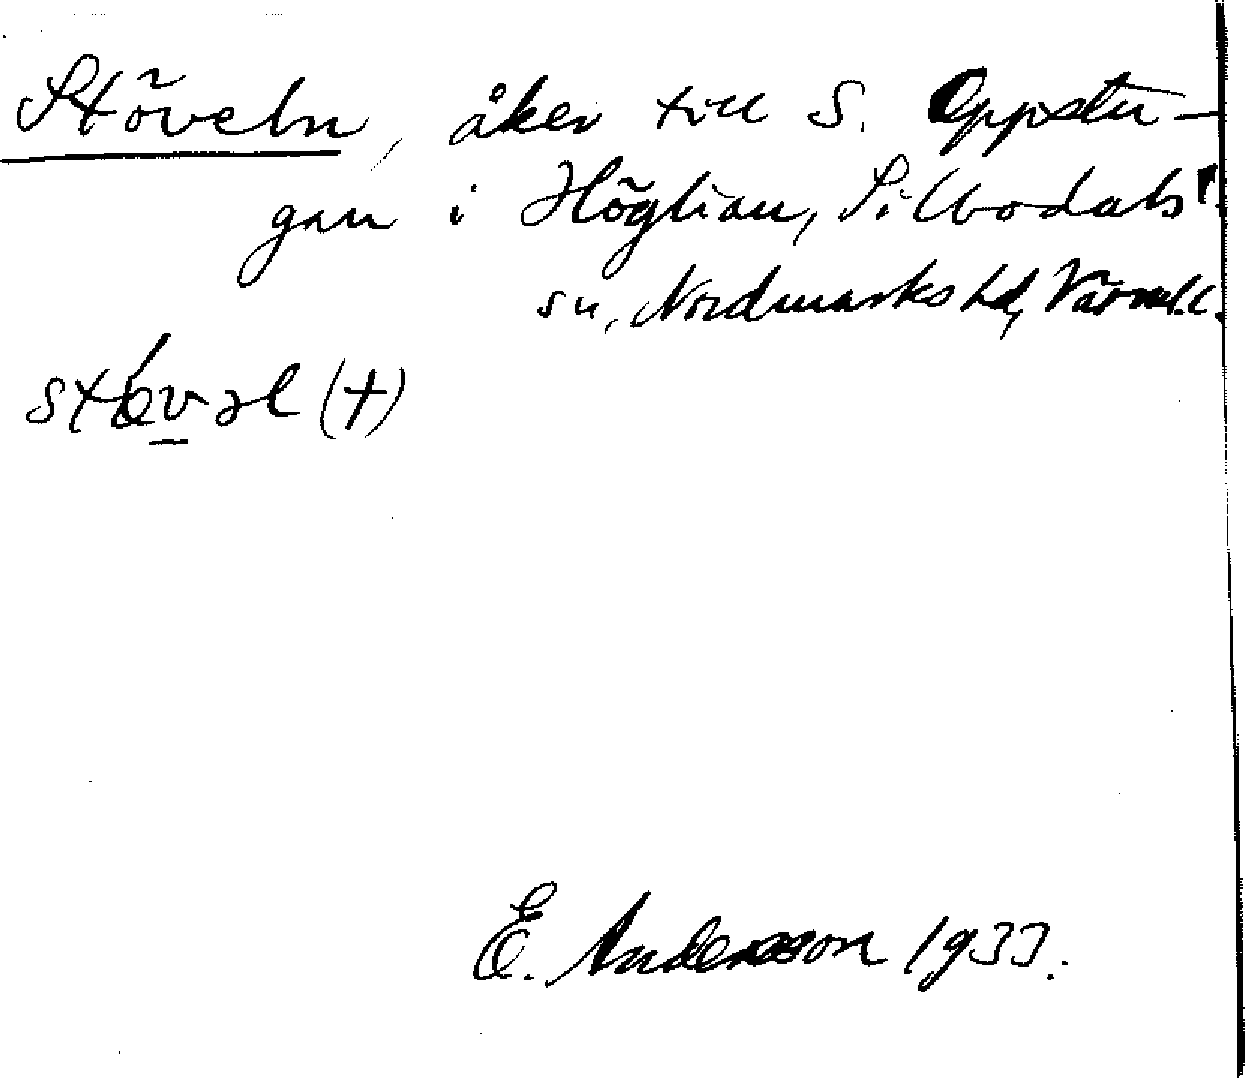 Stöveln, åker till S. Oppstu-
gan i Höglian, Silbodals
sn, Nordmarks hd, Värml.l.
stǿvəl (+)
E. Andersson 1933.